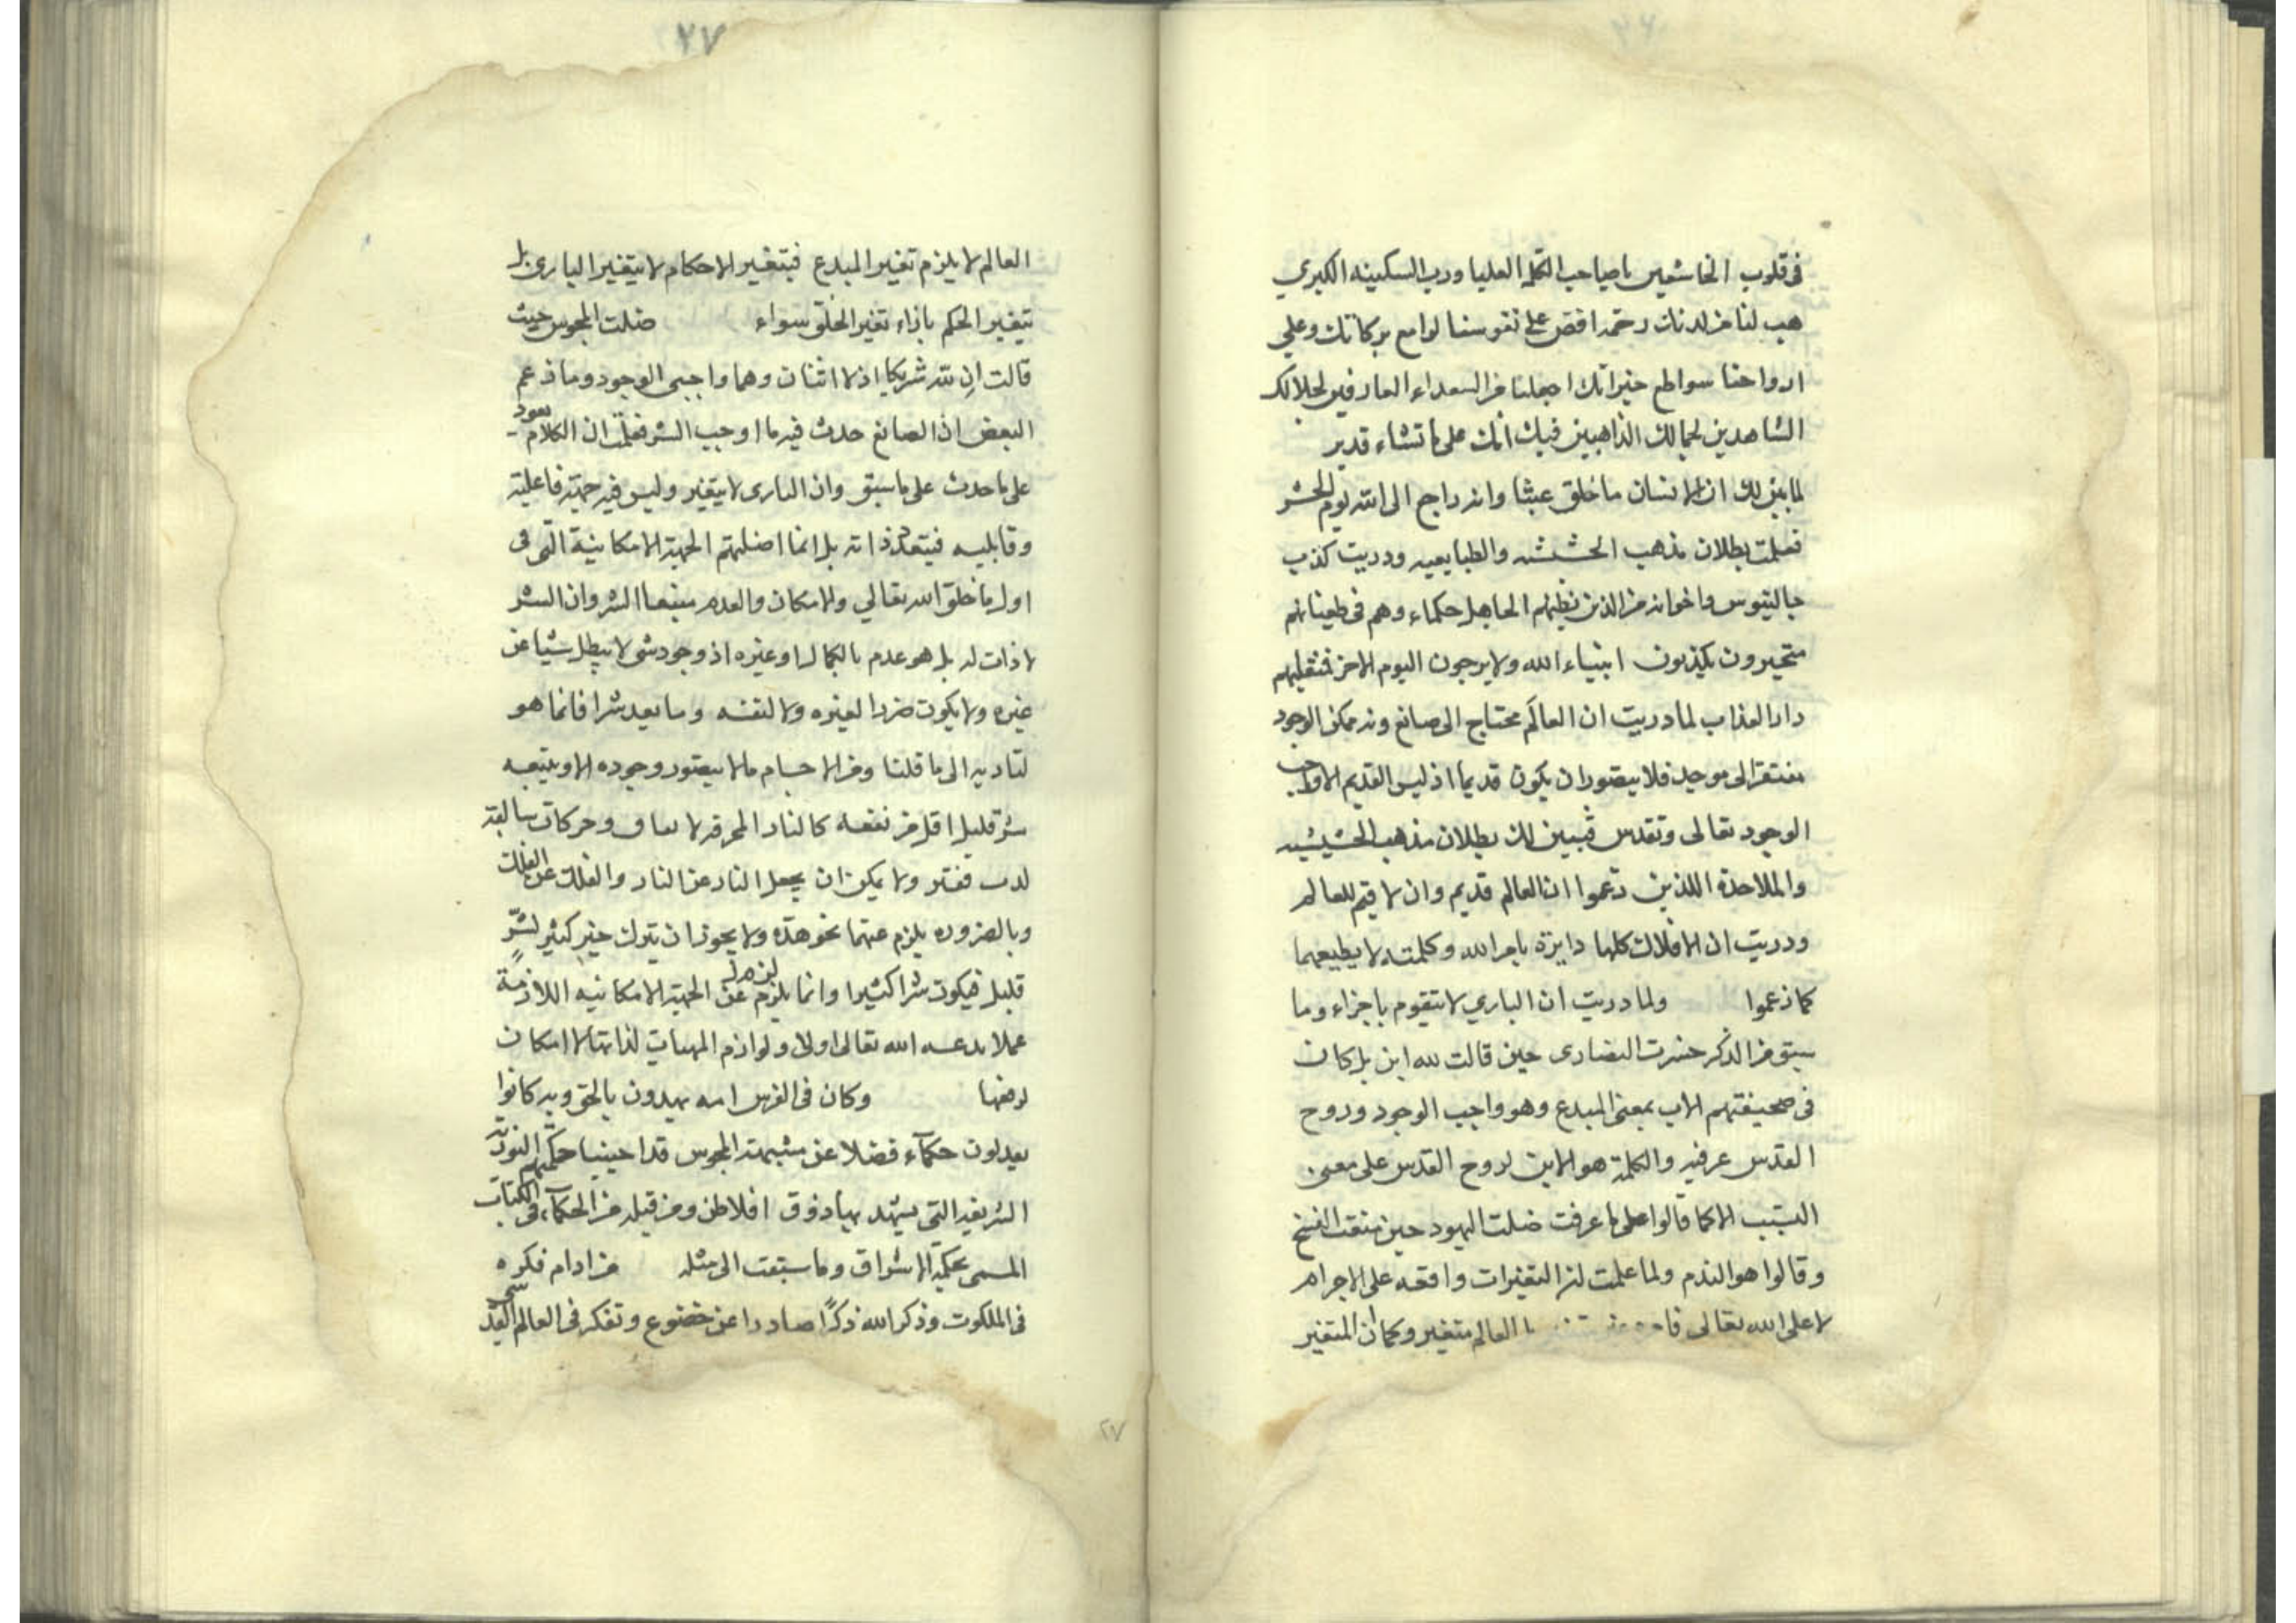 فى قلوب الخاشعين يا صاحب الكلمه العليا ورب السكينه الكبري
هب لنا من لدنك رحمه افض على نفوسنا لوامع بركاتك وعلى
ارواحنا سواطع خيراتك اجعلنا من السعداء العارفين لجلالك
الشاهدين لجمالك الذاهبين فيك انك على ما تشاء قدير
لما بين لك ان الانسان ما خلق عبثا وانه راجع الى الله يوم الحشر
فعلمت بطلان مذهب الحششه والطبايعيه ودريت كذب
جالينوس واخوانه من الذين يظنهم الجاهل حكماء وهم فى طغيانهم
متحيرون يكذبون انبياء الله ولا يرجون اليوم الاخر
دار العذاب لما دريت ان العالم محتاج الى صانع وانه ممكن الوجود
مفتقر الى موجد فلا يتصور ان يكون قديما اذ ليس القديم الا واجب
الوجود تعالى وتقدس فتبين لك بطلان مذهب الحشيشيه
والملاحدة اللذين زعموا ان العالم قديم وان لا قيم للعالم
ودريت ان الافلاك كلها دايرة بامر الله وكلمته لا بطبعها
كما زعموا ولما دريت ان الباري لا يتقوم باجزاء وما
سبق من الذكر خسرت النصارى حين قالت لله ابن بل كان
فى صحيفتهم الاب بمعنى المبدع وهو واجب الوجود وروح
القدس عرفته والكلمة هو الابن لروح القدس على معنى
التسبب لا كما قالوا على ما عرفت ضلت اليهود حين منعت النسخ
وقالوا هو الندم ولما علمت ان التغيرات واقعه على الاجرام
لا على الله تعالى العالم متغير وكما ان المتغير
٢٧
العالم لا يلزم تغير المبدع فبتغير الاحكام لا يتغير الباري بل
يتغير الحكم بازاء تغير الخلق سواء ضلت المجوس حيث
قالت ان لله شريكا اذ لا اثنان وهما واجبى الوجود وما زعم
البعض ان الصانع حدث فيه ما اوجب الشر فعلمت ان الكلام يعود
على ما حدث على ما سبق وان البارى لا يتغير وليس فيه جهة فاعلية
وقابليه فيتعدد ذاته بل انما اضلهم الجهة الامكانية التى فى
اول ما خلق الله تعالي والامكان والعدم منبعا الشر وان الشر
لا ذات له بل هو عدم ما لكمال او غيره اذ وجود شى لا يبطل شيا عن
غيره ولا يكون ضررا لغيره ولا لنفسه وما يعد شرا فانما هو
لتاديه الى ما قلنا ومن الاجسام ما لا يتصور وجوده الا ويتبعه
شر قليل اقل من نفعه كالنار المحرقه وحركات سالفة
ولا يمكن ان يجعل النار عن النار والفلك عن الفلك
وبالضروره يلزم عنهما نحو هذه ولا يجوز ان يترك خير كثير لشر
قليل فيكون شرا كثيرا وانما يلزم عن الجهة الامكانيه اللازمة
الله تعالى اولا ولوازم المهيات لذاتها لا امكان
لرفعها وكان فى الفرس امه يهدون بالحق وبه كانوا
يعدلون حكماء فضلا عن مشبهة المجوس قد احيينا حكمتهم النورية
الشريفه التى يشهد بها ذوق افلاطن ومن قبله من الحكماء فى الكتاب
المسمى بحكمة الاشراق وما سبقت الى مثله من ادام فكره
فى الملكوت وذكر الله ذكرا صادرا عن خضوع وتفكر فى العالم القدسى
٢٧